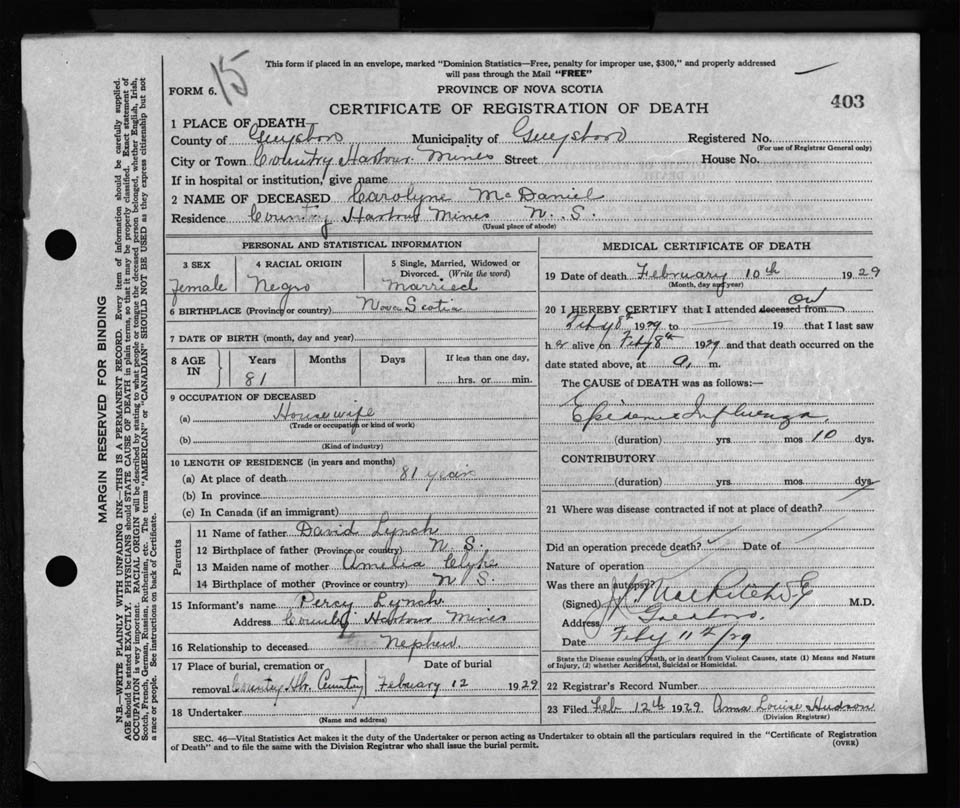 15
This form if placed in an envelope, marked "Dominion Statistics—Free, penalty for improper use, $300," and properly addressed
will pass through the Mail "FREE"
FORM 6.
PROVINCE OF NOVA SCOTIA
CERTIFICATE OF REGISTRATION OF DEATH
403
1 PLACE OF DEATH
County of Guysboro Municipality of Guysboro Registered No.
(For use of Registrar General only)
City or Town Country Harbour Mines Street House No.
If in hospital or institution, give name
2 NAME OF DECEASED Carolyne McDaniel
Residence Country Harbour Mines N. S.
(Usual place of abode)
PERSONAL AND STATISTICAL INFORMATION
3 SEX 4 RACIAL ORIGIN 5 Single, Married, Widowed or
Divorced. (Write the word)
Female Negro Married
6 BIRTHPLACE (Province or country) Nova Scotia
7 DATE OF BIRTH (month, day and year)
8 AGE IN Years Months Days If less than one day,
81 hrs. or min.
9 OCCUPATION OF DECEASED
(a) Housewife
(Trade or occupation or kind of work)
(b)
(Kind of industry)
10 LENGTH OF RESIDENCE (in years and months)
(a) At place of death 81 years
(b) In province
(c) In Canada (if an immigrant)
Parents
11 Name of father David Lynch
12 Birthplace of father (Province or country) N. S.
13 Maiden name of mother Amelia
14 Birthplace of mother (Province or country) N S
15 Informant's name Percy Lynch
Address Country Harbour Mines
16 Relationship to deceased Nephew
17 Place of burial, cremation or Date of burial
removal Country Hbr. February 12 1929
18 Undertaker
(Name and address)
MEDICAL CERTIFICATE OF DEATH
19 Date of death February 10th 1929
(Month, day and year)
20 I HEREBY CERTIFY that I attended deceased from on
Feby 8th 1929 to 19 that I last saw
her alive on Feby 8th 1929 and that death occurred on the
date stated above, at a. m.
The CAUSE of DEATH was as follows:—
Epidemic Influenza
(duration) yrs. mos 10 dys.
CONTRIBUTORY
(duration) yrs. mos dys
21 Where was disease contracted if not at place of death?
Did an operation precede death? Date of
Nature of operation
Was there an autopsy?
(Signed) M.D.
Address
Date Feby 11th/29
State the Disease causing Death, or in death from Violent Causes, state (1) Means and Nature
of Injury, (2) whether Accidental, Suicidal or Homicidal.
22 Registrar's Record Number
23 Filed Feb 12th 1929 Anna Louise Hudson
(Division Registrar)
SEC. 46—Vital Statistics Act makes it the duty of the Undertaker or person acting as Undertaker to obtain all the particulars required in the "Certificate of Registration
of Death" and to file the same with the Division Registrar who shall issue the burial permit.
(OVER)
MARGIN RESERVED FOR BINDING
N.B.—WRITE PLAINLY WITH UNFADING INK—THIS IS A PERMANENT RECORD. Every item of information should be carefully supplied.
AGE should be stated EXACTLY. PHYSICIANS should STATE CAUSE OF DEATH in plain terms, so that it may be properly classified. Exact statement of
OCCUPATION is very important. RACIAL ORIGIN will be described by stating to what people or tongue the deceased person belonged, whether English, Irish,
Scotch, French, German, Russian, Ruthenian, etc. The terms "AMERICAN" or "CANADIAN" SHOULD NOT BE USED as they express citizenship but not
a race or people. See instructions on back of Certificate.